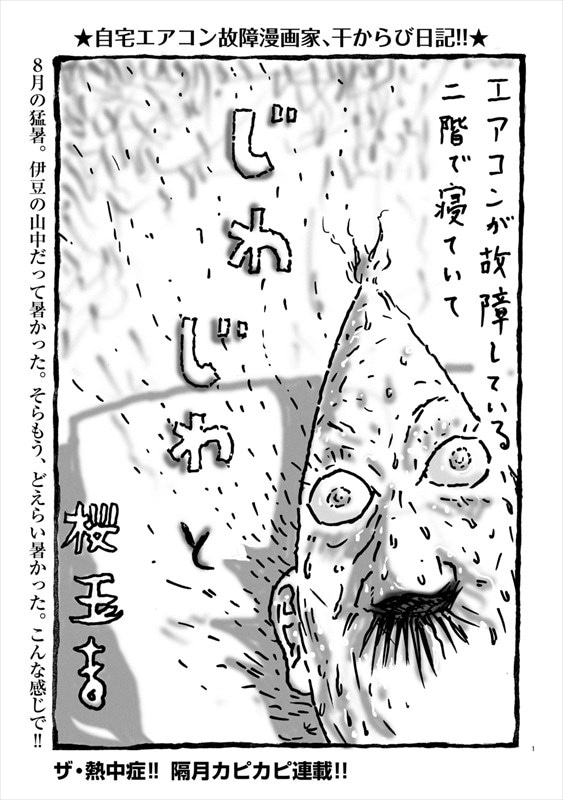 ★自宅エアコン故障漫画家、干からび日記!!★
エアコンが故障している
二階で寝ていて
じわじわと
桜玉吉
8月の猛暑。伊豆の山中だって暑かった。そらもう、どえらい暑かった。こんな感じで!!
ザ・熱中症!! 隔月カピカピ連載!!
1